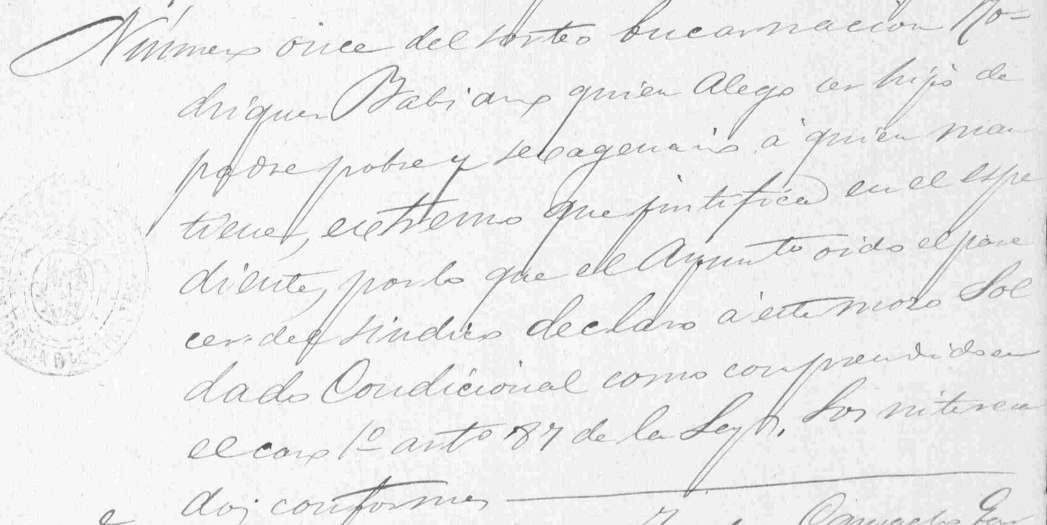 Número once del sorteo Encarnación Ro-
driguez Babiano quien alego ser hijo de
padre pobre y sexagenario á quien man
tiene, extremo que justifica en el espe
diente, por lo que el Ayuntº oido el pare
cer del sindico declaro á este mozo Sol
dado Condicional como comprendido en
el caso 1º artº 87 de la Ley. Los interesa
dos conformes